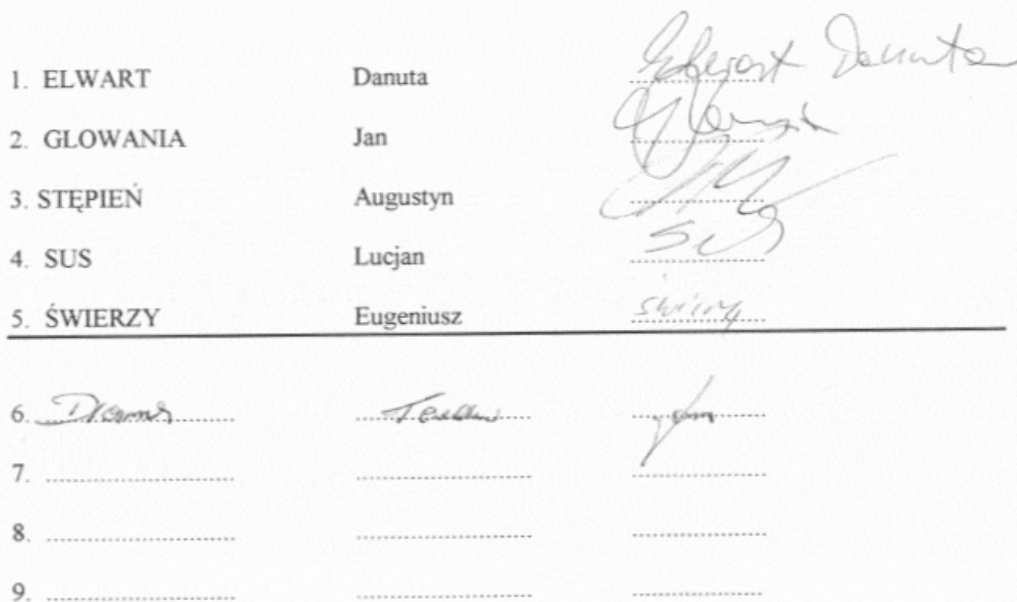 1. ELWART Danuta Elwart Danuta
2. GLOWANIA Jan
3. STĘPIEŃ Augustyn
4. SUS Lucjan Sus
5. ŚWIERZY Eugeniusz Świerzy
6.
7.
8.
9.